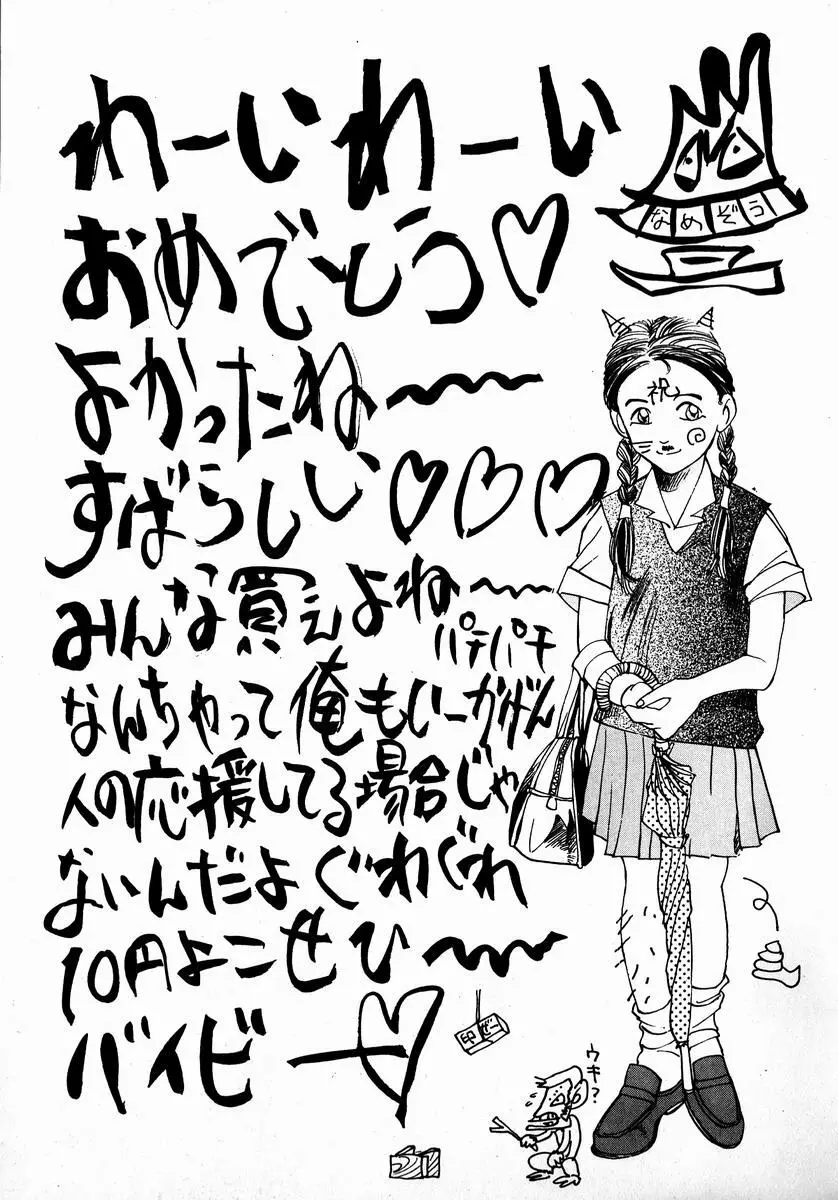 わーいわーい
おめでとう♡
よかったね〜〜
すばらしい♡♡♡
みんな買えよね〜〜
パチパチ
なんちゃって俺もいーかげん
人の応援してる場合じゃ
ないんだよぐわぐれ
10円よこせひ〜〜
バイビー♡
なめぞう
祝
ウキ?